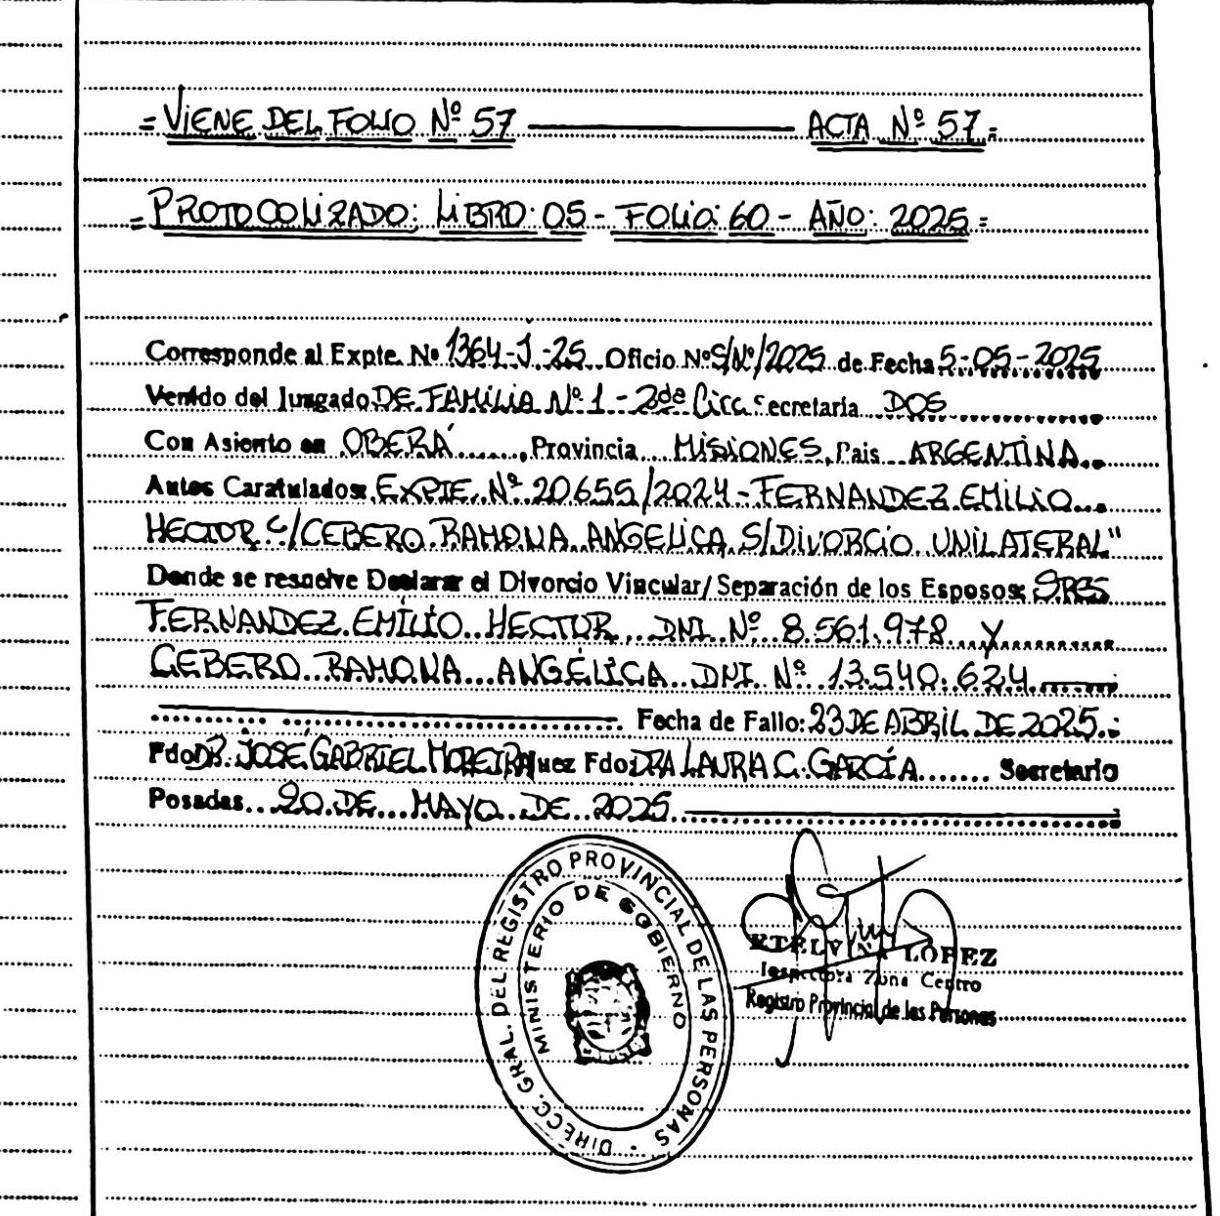 =VIENE DEL FOLIO Nº 57 ACTA Nº 57=
=PROTOCOLIZADO: LIBRO: 05 - FOLIO: 60 - AÑO: 2025=
Corresponde al Expte. Nº 1364-J-25 Oficio Nº S/Nº/2025 de Fecha 5-05-2025
Venido del Juzgado DE FAMILIA Nº 1 - 2de Circ Secretaria DOS
Con Asiento en OBERÁ, Provincia MISIONES, Pais ARGENTINA
Autos Caratulados: EXPTE. Nº 20655/2024 - FERNANDEZ EMILIO
HECTOR C/CEBERO RAMONA ANGELICA S/DIVORCIO UNILATERAL"
Donde se resuelve Declarar el Divorcio Vincular/Separación de los Esposos: SRES
FERNANDEZ EMILIO HECTOR DNI Nº 8.561.978 Y
CEBERO RAMONA ANGÉLICA DNI Nº 13.540.624
Fecha de Fallo: 23 DE ABRIL DE 2025.
Fdo DR. JOSÉ GABRIEL MOREIRA Juez Fdo: DRA LAURA C. GARCÍA Secretario
Posadas 20 DE MAYO DE 2025
DIRECC. GRAL. DEL REGISTRO PROVINCIAL DE LAS PERSONAS
MINISTERIO DE GOBIERNO
ETELVINA LOPEZ
Inspectora Zona Centro
Registro Provincial de las Personas